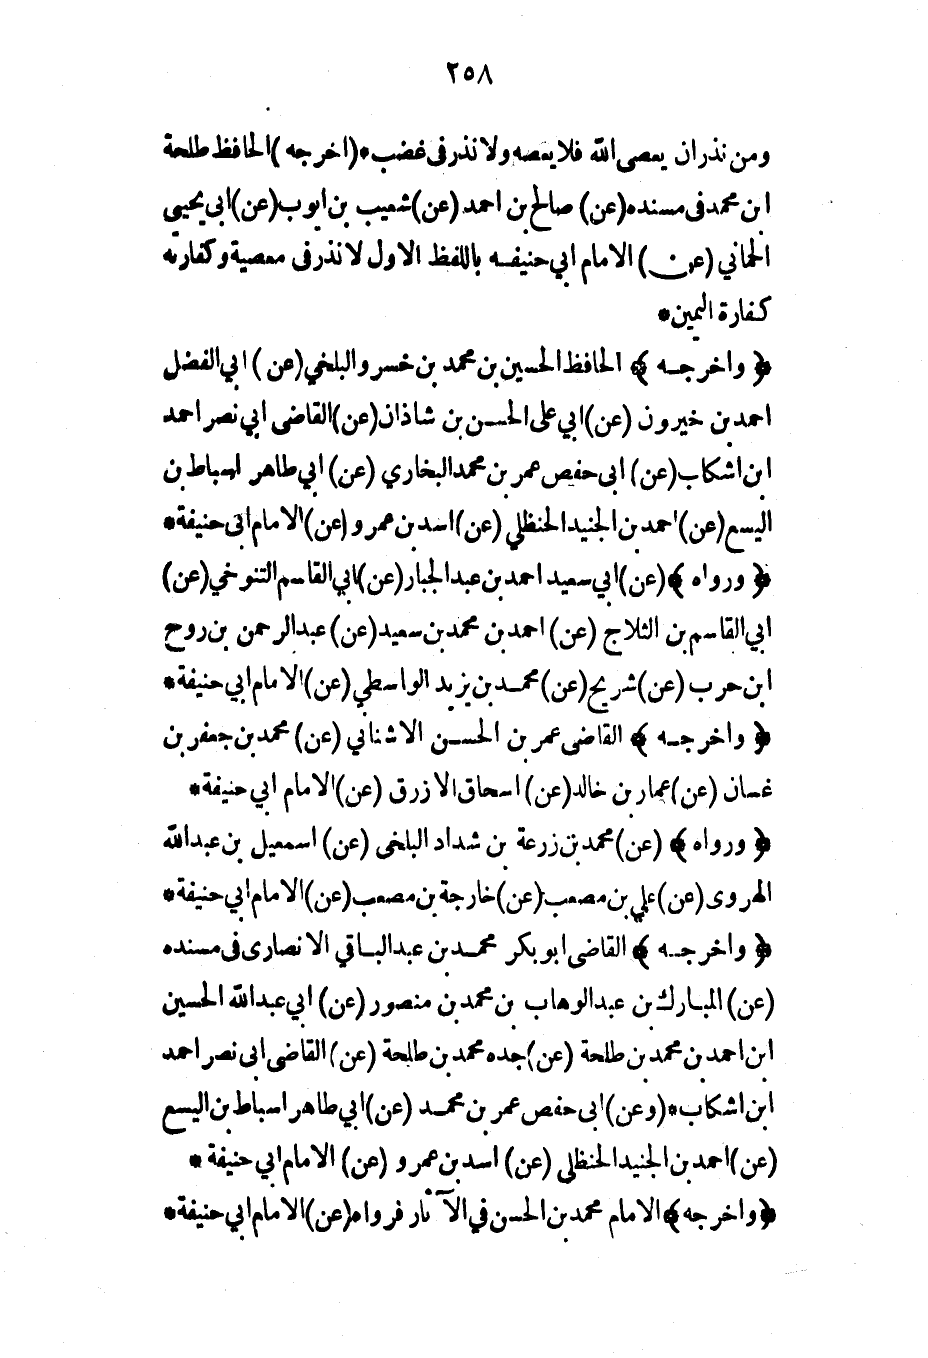 ٢٥٨
ومن نذر ان يعصى الله فلا يعصه ولا نذر فى غضب *(اخرجه) الحافظ طلحة
ابن محمد فى مسنده (عن) صالح بن احمد (عن) شعيب بن ايوب (عن) ابي يحيى
الحماني (عن) الامام ابي حنيفه باللفظ الاول لا نذر فى معصية وكفارته
كفارة اليمين *
﴿ واخرجه ﴾ الحافظ الحسين بن محمد بن خسرو البلخي (عن) ابي الفضل
احمد بن خيرون (عن) ابي على الحسن بن شاذان (عن) القاضى ابي نصر احمد
ابن اشكاب (عن) ابى حفص عمر بن محمد البخاري (عن) ابي طاهر اسباط بن
اليسع (عن) احمد بن الجنيد الحنظلي (عن) اسد بن عمرو (عن) الامام ابى حنيفة *
﴿ ورواه ﴾ (عن) ابي سعيد احمد بن عبد الجبار (عن) ابي القاسم التنوخي (عن)
ابي القاسم بن الثلاج (عن) احمد بن محمد بن سعيد (عن) عبد الرحمن بن روح
ابن حرب (عن) شريح (عن) محمد بن يزيد الواسطي (عن) الامام ابي حنيفة *
﴿ واخرجه ﴾ القاضى عمر بن الحسن الاشنانى (عن) محمد بن جعفر بن
غسان (عن) عمار بن خالد (عن) اسحاق الازرق (عن) الامام ابي حنيفة *
﴿ ورواه ﴾ (عن) محمد بن زرعة بن شداد البلخى (عن) اسمعيل بن عبد الله
الهروى (عن) علي بن مصعب (عن) خارجة بن مصعب (عن) الامام ابي حنيفة *
﴿ واخرجه ﴾ القاضى ابو بكر محمد بن عبد الباقي الانصارى فى مسنده
(عن) المبارك بن عبد الوهاب بن محمد بن منصور (عن) ابي عبد الله الحسين
ابن احمد بن محمد بن طلحة (عن) جده محمد بن طلحة (عن) القاضى ابى نصر احمد
ابن اشكاب *(وعن) ابى حفص عمر بن محمد (عن) ابي طاهر اسباط بن اليسع
(عن) احمد بن الجنيد الحنظلي (عن) اسد بن عمرو (عن) الامام ابي حنيفة *
﴿ واخرجه ﴾ الامام محمد بن الحسن في الآثار فرواه (عن) الامام ابي حنيفة *